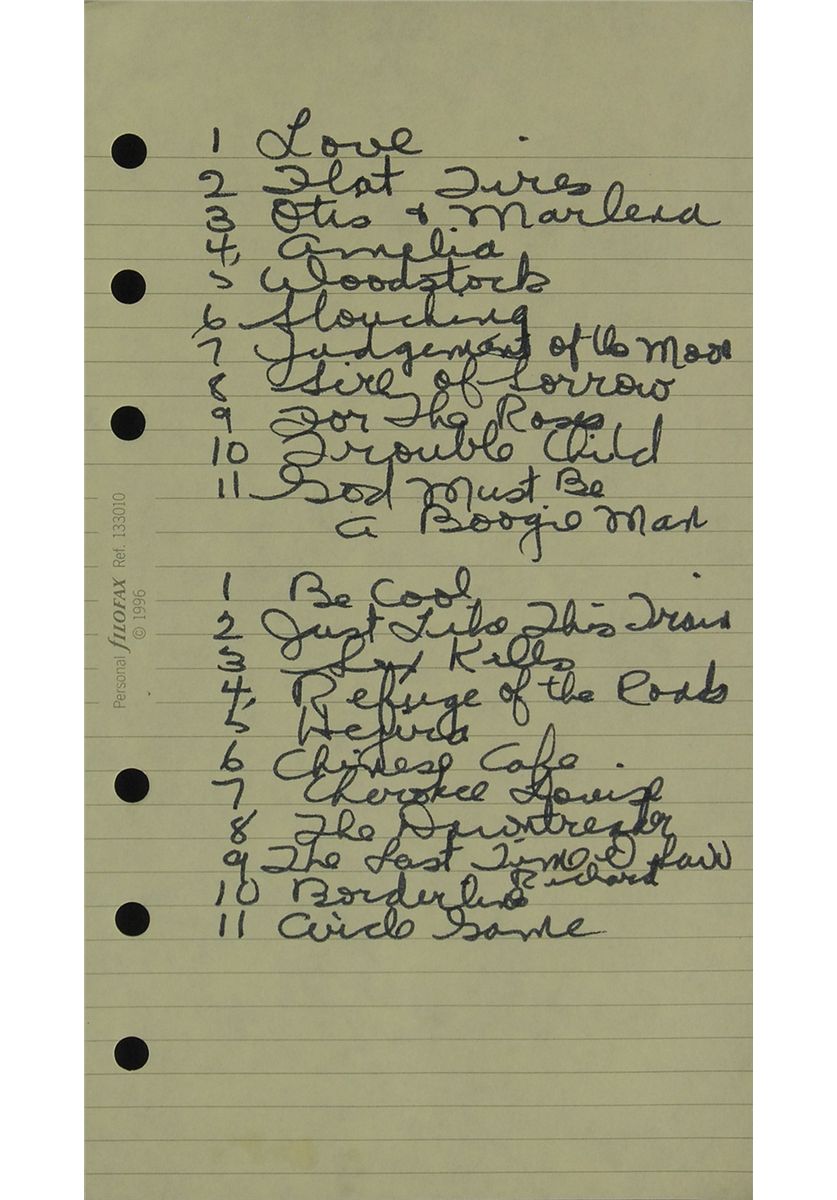 1 Love
2 Flat Tires
3 Otis & Marlena
4, Amelia
5 Woodstock
6 Slouching
7 Judgement of the Moon
8 Sire of Sorrow
9 For The Roses
10 Trouble Child
11 God Must Be
a Boogie Man
1 Be Cool
2 Just Like This Train
3 Sex Kills
4, Refuge of the Roads
5 Hejira
6 Chinese Cafe
7 Cherokee Louise
8 The Dawntreader
9 The Last Time I Saw
Richard
10 Borderline
11 Circle Game
Personal FILOFAX Ref. 133010
© 1996